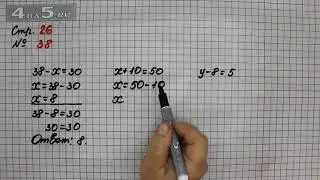 4 НА 5.RU
Стр. 26
№ 38
38-x=30
x=38-30
x=8
38-8=30
30=30
Ответ: 8.
x+10=50
x=50-10
x
y-8=5